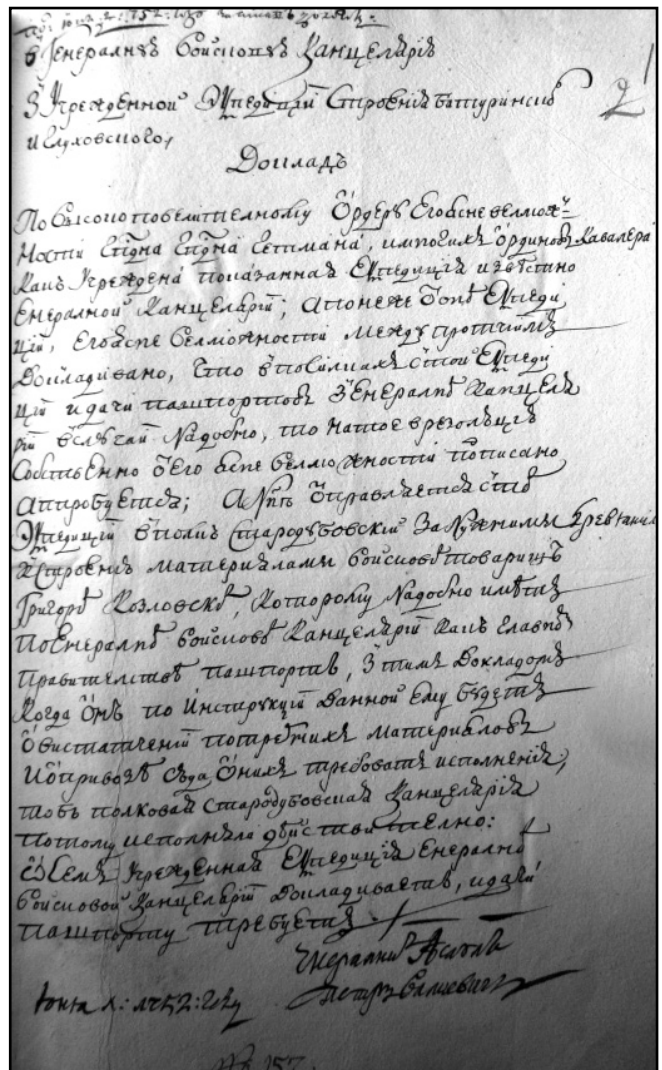 в Генералную войсковую Канцелярію
З Учрежденной Экспедиціи Строенія Батуринского
и Глуховского,
2
Докладъ
По высокоповелителному Ордеру Его ясневелмож-
ности Гпдна Гпдна Гетмана, и многихъ Ординовъ Кавалера
какъ Учреждена показанная Експедиція извѣстно
Енералной Канцеляріи; а понеже Експеди
ціи, Его ясне велможности между протчиимъ
докладивано, что в посилкахъ с той Експеди
ціи и дачи пашпортовъ З Енералной Канцеля
ріи в случаи надобно, то на тое в резолюціи
собственно Его ясне велможности подписано
аппробуется; а нне отправляется с той
Экспедиціи в полкъ Стародубовскій за нужними к
строенію материялами войсковій товарищъ
Григорій Козловскій, которому надобно имѣть
по Енералной войсковой Канцеляріи какъ главной
правителства пашпортъ, З тимъ докладомъ
когда Онъ по Инструкціи данной ему будетъ
О виставленіи потребнихъ материяловъ
и О привозѣ сюда Онихъ требовать исполненія,
тобъ полковая Стародубовская Канцелярія
потому исполняла дѣйствително:
О семъ Учрежденная Експедиція Енералной
войсковой Канцеляріи докладиваетъ, и дачи
пашпорту требуетъ
Генералній Асаулъ
Петръ Валкевичъ
Юня 1752: году
№ 157